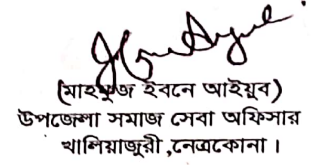 (মাহফুজ ইবনে আইয়ুব)
উপজেলা সমাজ সেবা অফিসার
খালিয়াজুরী ,নেত্রকোনা ।